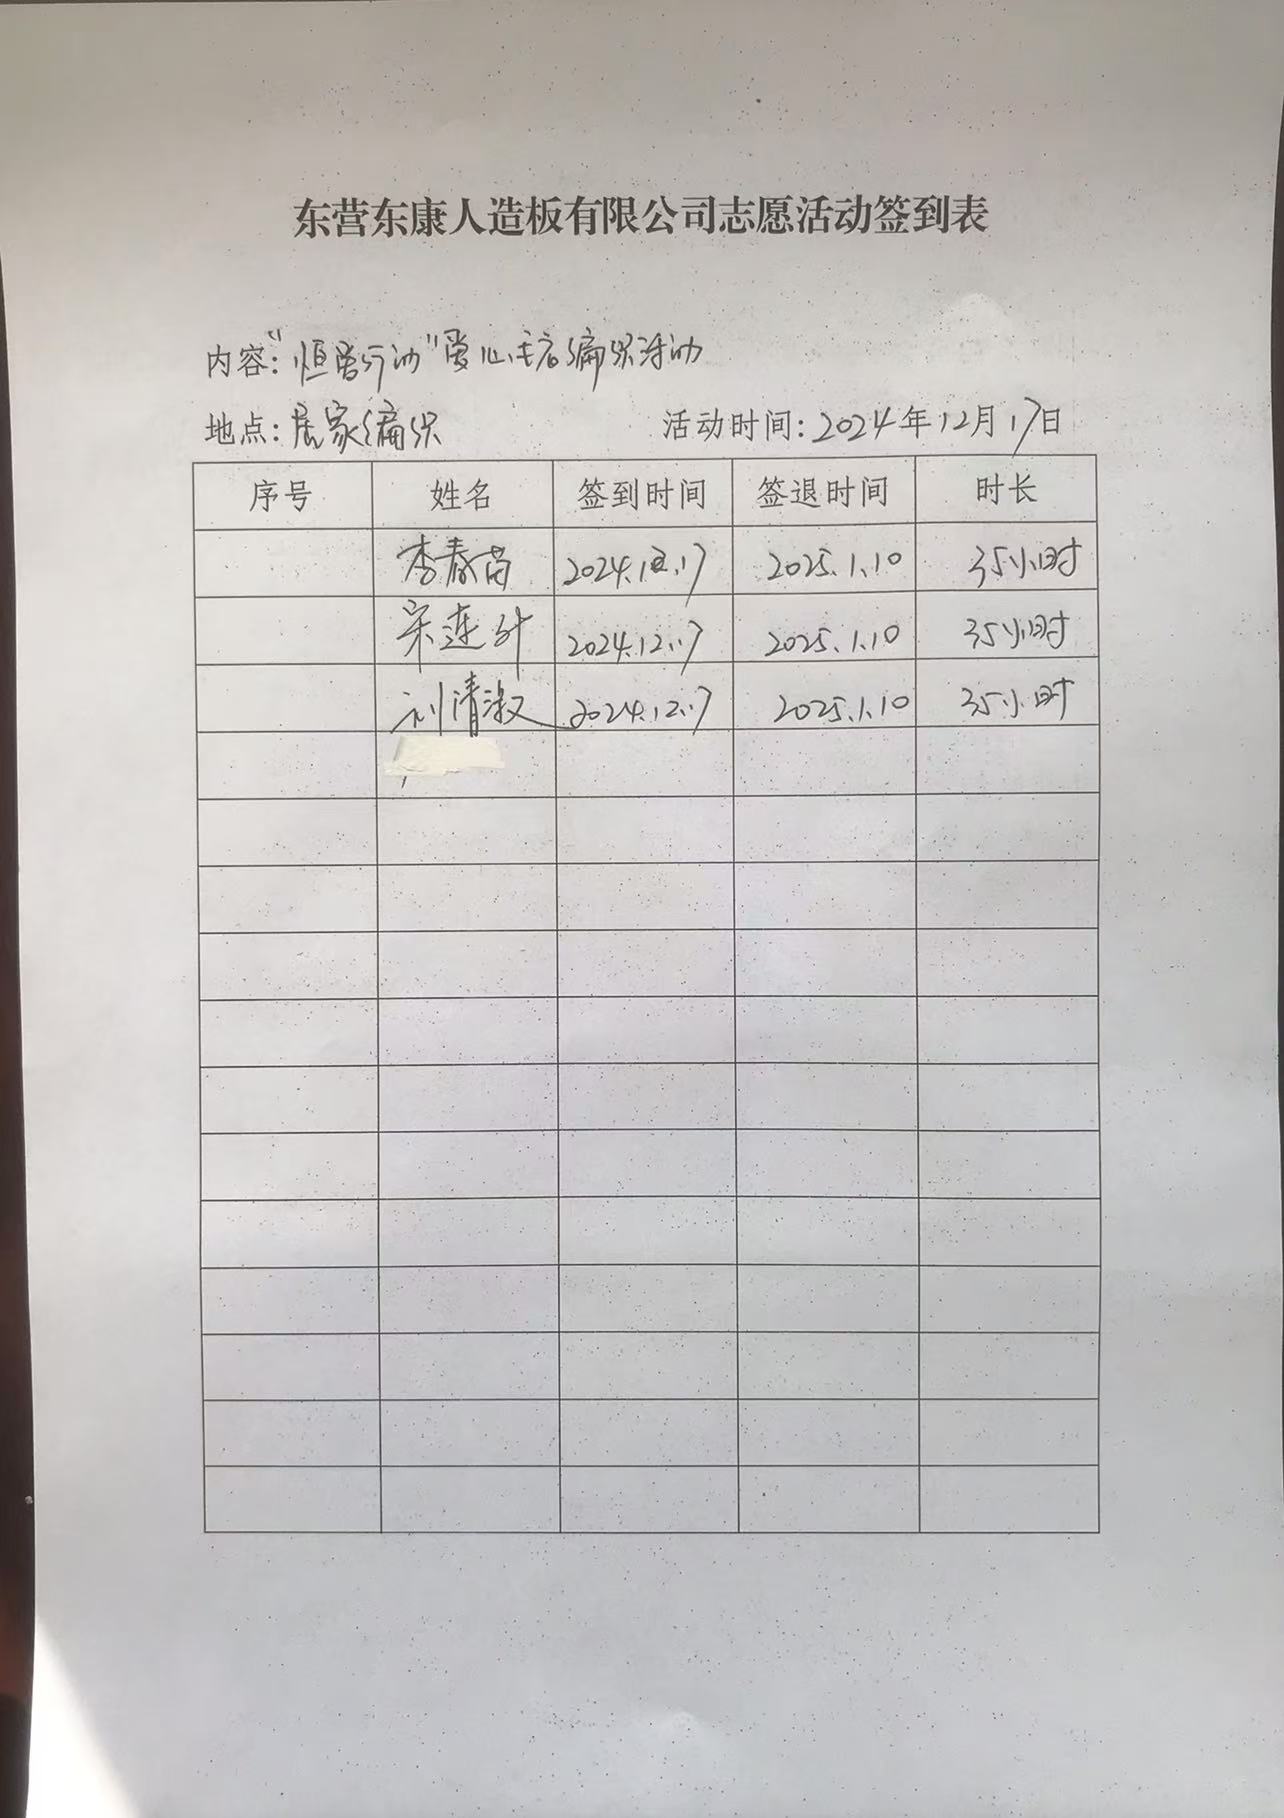 东营东康人造板有限公司志愿活动签到表
内容：“恒爱行动”爱心毛衣编织活动
地点：居家编织 活动时间：2024年12月17日
序号 姓名 签到时间 签退时间 时长
李春苗 2024.12.17 2025.1.10 35小时
宋莲叶 2024.12.17 2025.1.10 35小时
刘清淑 2024.12.17 2025.1.10 35小时